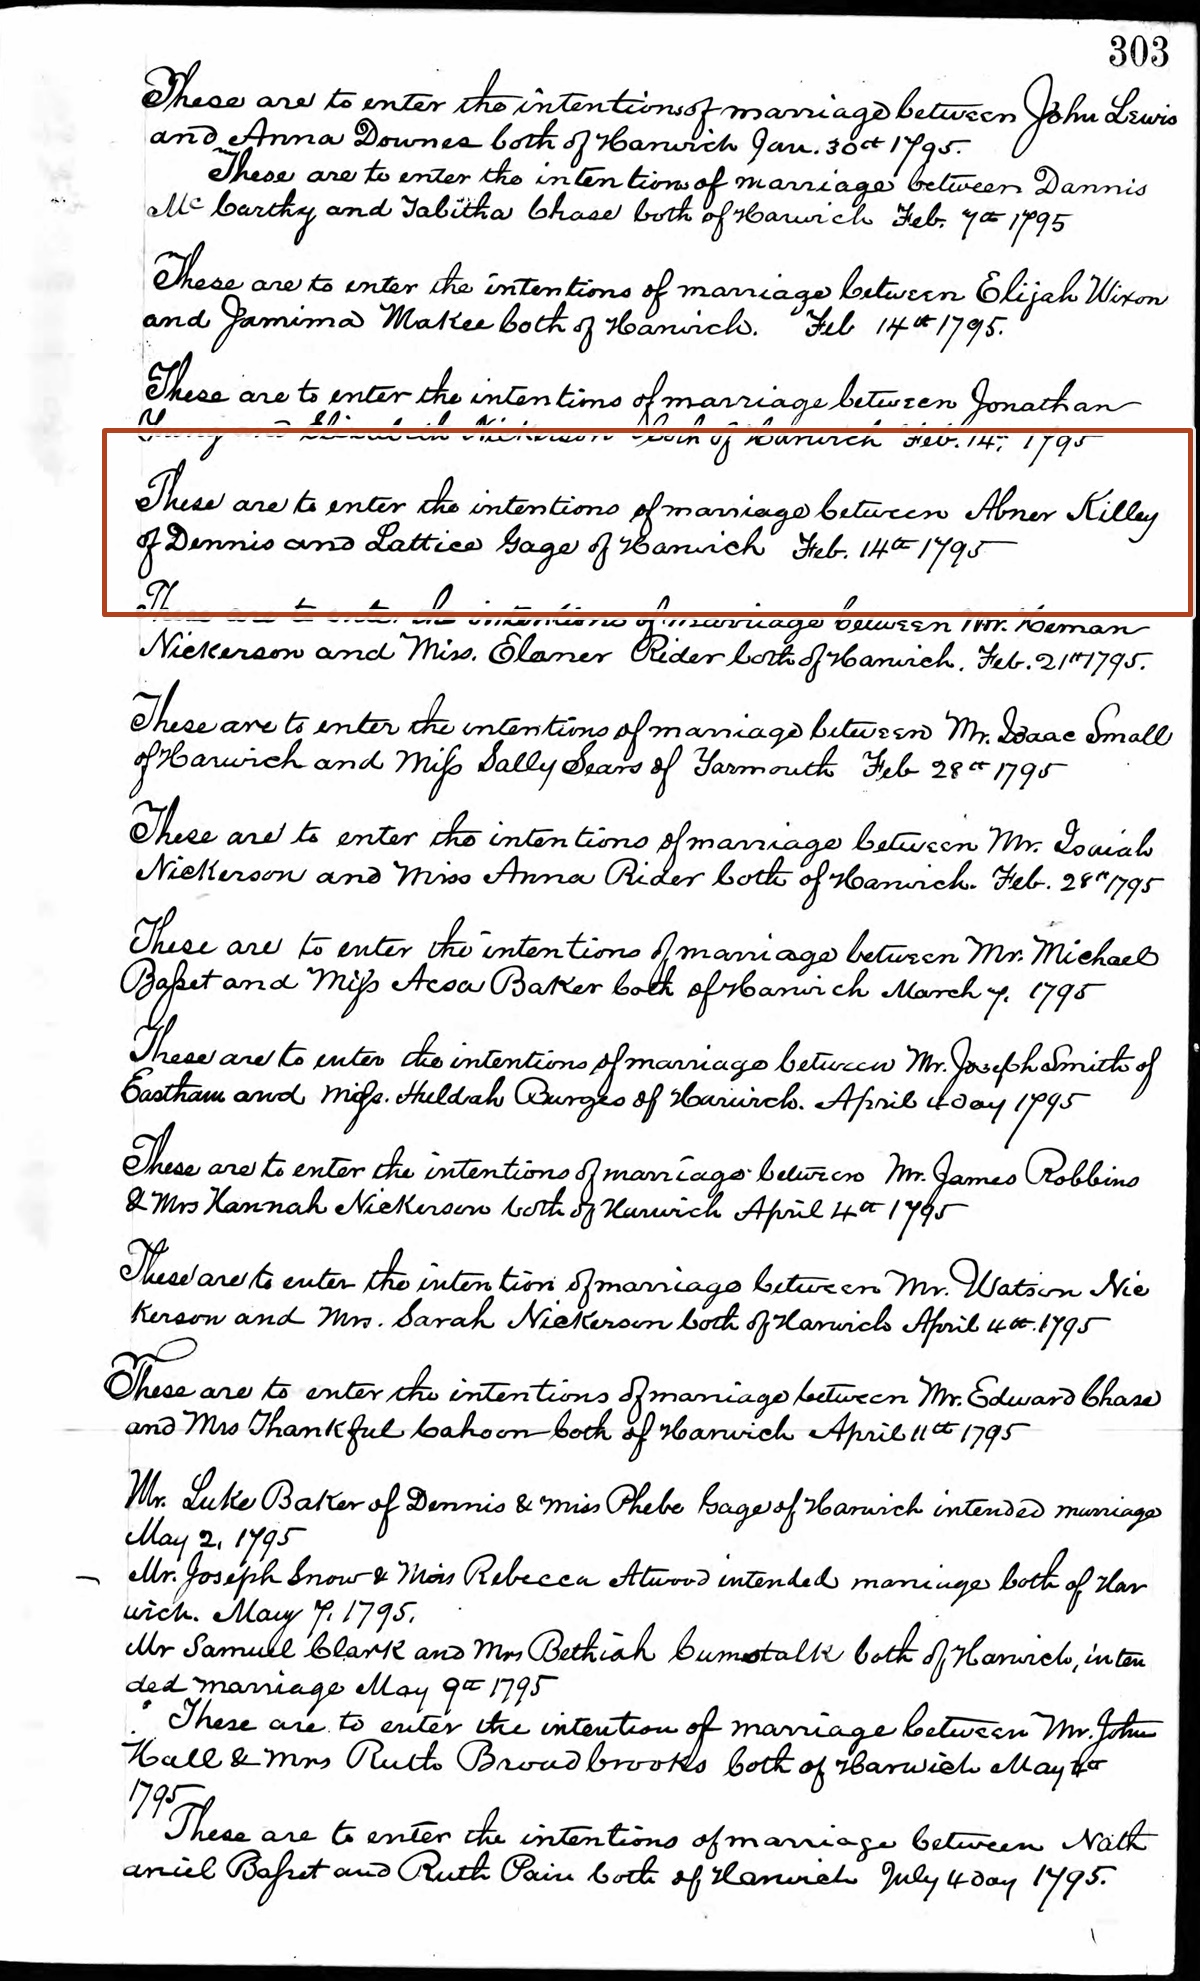 303
These are to enter the intentions of marriage between John Lewis
and Anna Downes both of Harwich Jan. 30th 1795.
These are to enter the intentions of marriage between Dannis
Mc Carthy and Tabitha Chase both of Harwich Feb. 7th 1795
These are to enter the intentions of marriage between Elijah Wixon
and Jamima Makee both of Harwich. Feb 14th 1795.
These are to enter the intentions of marriage between Jonathan
Young and Elizabeth Nickerson both of Harwich Feb. 14, 1795
These are to enter the intentions of marriage between Abner Killey
of Dennis and Lattice Gage of Harwich Feb. 14th 1795
These are to enter the intentions of marriage between Mr. Heman
Nickerson and Miss. Elaner Rider both of Harwich. Feb. 21st 1795.
These are to enter the intentions of marriage between Mr. Isaac Small
of Harwich and Miss Sally Sears of Yarmouth Feb 28th 1795
These are to enter the intentions of marriage between Mr. Isaiah
Nickerson and Miss Anna Rider both of Harwich. Feb. 28th 1795
These are to enter the intentions of marriage between Mr. Michael
Basset and Miss Acsa Baker both of Harwich March 7. 1795
These are to enter the intentions of marriage between Mr. Joseph Smith of
Eastham and Miss. Huldah Burges of Harwich. April 4 day 1795
These are to enter the intentions of marriage between Mr. James Robbins
& Mrs Hannah Nickerson both of Harwich April 4th 1795
These are to enter the intention of marriage between Mr. Watson Nic
kerson and Mrs. Sarah Nickerson both of Harwich April 4th. 1795
These are to enter the intentions of marriage between Mr. Edward Chase
and Mrs Thankful Cahoon both of Harwich April 11th 1795
Mr. Luke Baker of Dennis & Miss Phebe Gage of Harwich intended marriage
May 2, 1795
Mr. Joseph Snow & Miss Rebecca Atwood intended marriage both of Har
wich. May 7. 1795.
Mr Samuel Clark and Mrs Bethiah Cumstalk both of Harwich, inten
ded marriage May 9th 1795
These are to enter the intention of marriage between Mr. John
Hall & Mrs Ruth Broadbrooks both of Harwich May
1795
These are to enter the intentions of marriage between Nath
aniel Basset and Ruth Pain both of Harwich July 4 day 1795.